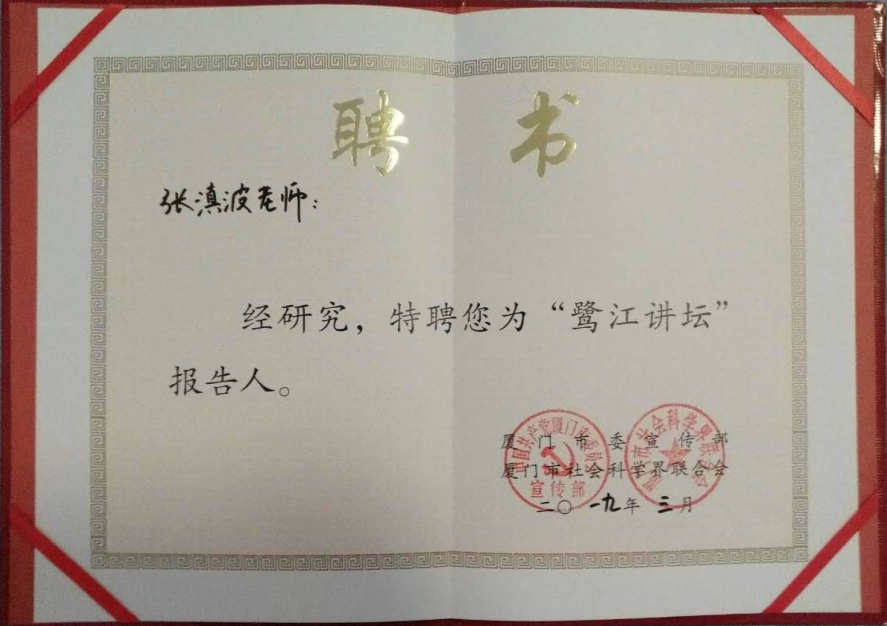 聘书
张滇波老师：
经研究，特聘您为“鹭江讲坛”
报告人。
厦门市委宣传部
厦门市社会科学界联合会
二〇一九年三月
中国共产党厦门市委员会
宣传部
厦门市社会科学界联合会